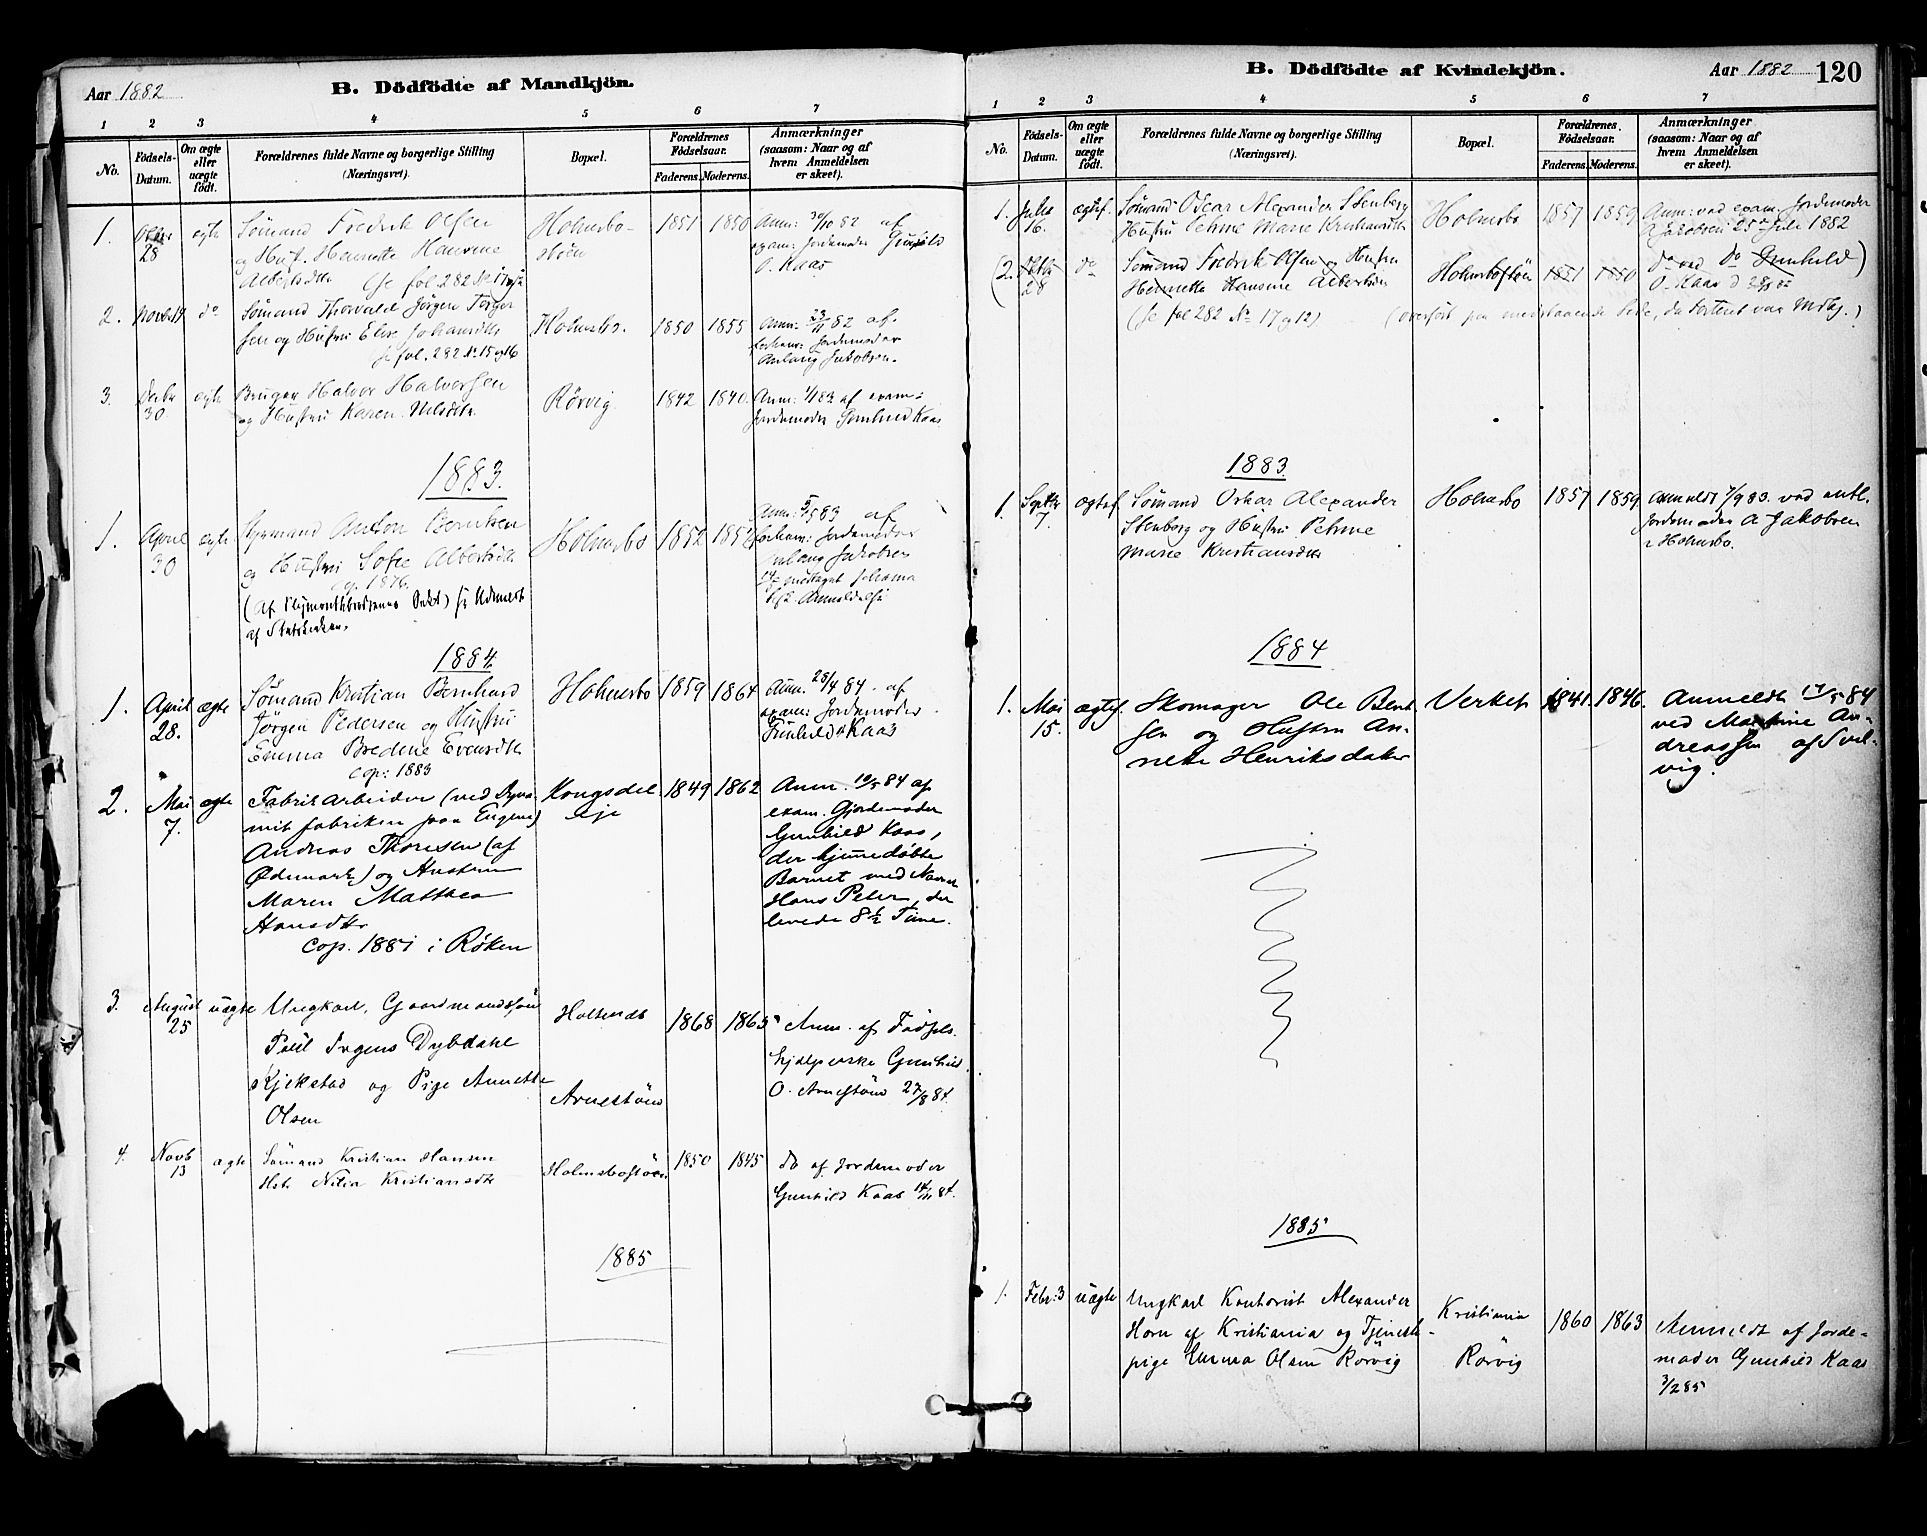 Aar 1882
B. Dödfödte af Mandkjön.
1 2 3 4 5 6 7
No.
Födsels-
Datum.
Om ægte
eller
uægte
födt.
Forældrenes fulde Navne og borgerlige Stilling
(Næringsvei).
Bopæl.
Forældrenes
Födselsaar.
Faderens. Moderens.
Anmærkninger
(saasom: Naar og af
hvem Anmeldelsen
er skeet).
1. Oktbr 28 ægte
Sömand Fredrik Olsen
og Hust. Hennette Hansine
Albertsdtr (se fol 282 № 17 og 12
Holmsbo-
1851 1850
Anm: 30/10 82 af
exam: Jordemoder Gunhild
O. Kaas
2. Novbr 14 do
Sömand Thorvald Jörgen Torger
sen og Hustru Elise Johansdtr
se fol. 282 № 15 og 16
Holmsbo.
1850 1855
Anm: 23/11 82 af
Jordemoder
Anlaug Jakobsen.
3. Decbr 30 ægte
Bruger Halvor Halversen
og Hustru Karen Nilsdtr.
Rörvig.
1842 1840.
Anm: 1/1 83 af exam:
Jordemoder Gunhild Kaas
1883.
1. April 30 ægte
Styrmand Anton Berntsen
og Hustru Sofie Albertsdtr
cop. 1876.
(Af Plymouthbrödrenes Sekt) se Udmeldt
af Statskirken.
Holmsbo
1852
Anm: 5/5 83 af
Jordemoder
Anlaug Jakobsen
modtaget
Anmeldelse
1884.
1. April 28. ægte
Sömand Kristian Bernhard
Jörgen Pedersen og Hustru
Emma Bredine Evensdtr
cop: 1883
Holmsbo
1859 1864
Anm. 28/4 84. af
exam: Jordemoder
Gunhild Kaas
2. Mai 7. ægte
Fabrikarbeider (ved Dyna-
mit fabriken paa Engene)
Andreas Thoresen (af
Ødemark) og Hustru
Maren Mathea
Hansdtr
cop. 1881 i Röken
Kongsdel
eje
1849 1862
Anm. 10/5 84 af
exam. Gjordemoder
Gunhild Kaas,
der hjemmedöbte
Barnet med Navnet
Hans Peter, der
levede 8½ Time.
3. August 25 uægte
Ungkarl, Gaardmandssön
Poul Jrgens Dybdahl
Kjekstad og Pige Annette
Olsen
Holtsnæs
Arnestöen
1868 1865
Anm. af Födsels-
hjælperske Gunhild
O. Arnestöen 27/8 84.
4. Novb 13 ægte
Sömand Kristian Hansen
Hstr Nilia Kristiansdtr
Holmsbostöen
1850 1845
do af Jordemoder
Gunhild Kaas 14/11 84.
1885
B. Dödfödte af Kvindekjön.
Aar 1882 120
1 2 3 4 5 6 7
No.
Födsels-
Datum.
Om ægte
eller
uægte
födt.
Forældrenes fulde Navne og borgerlige Stilling
(Næringsvei).
Bopæl.
Forældrenes
Födselsaar.
Faderens. Moderens.
Anmærkninger
(saasom: Naar og af
hvem Anmeldelsen
er skeet).
1. Juli 16. ægtef.
Sömand Oscar Alexander Stenberg
Hustru Petrine Marie Kristiansdtr
Holmsbo
1857 1859
Anm: ved exam. Jordemoder
A Jakobsen 25de Juli 1882
(2. Oktbr 28 do
Sömand Fredrik Olsen og Hustru
Hennette Hansine Albertsdtr
(se fol 282 № 17 og 12)
Holmsbostöen
1851 1850
do ved do Gunhild)
O. Kaas d 28/10 82
(overfört paa medstaaende Side, da Fosteret var Mdkj.)
1883.
1. Septbr 7. ægtef
Sömand Oskar Alexander
Stenberg og Hustru Petrine
Marie Kristiansdtr
Holmsbo
1857 1859
Anmeldt 7/9 83. ved
Jordemoder A Jakobsen
Holmsbo.
1884
1. Mai 15. ægtef
Skomager Ole Bent
sen og Hustru An-
nette Henriksdatter
Verket
1841. 1846.
Anmeldt 17/5 84
ved Martine An-
dreassen af Svel-
vig.
1885
1. Febr: 3 uægte
Ungkarl Kontorist Alexander
Horn af Kristiania og Tjeneste-
pige Emma Olsen Rörvig
Kristiania
Rörvig
1860 1863
Anmeldt af Jorde-
moder Gunhild Kaas
3/2 85